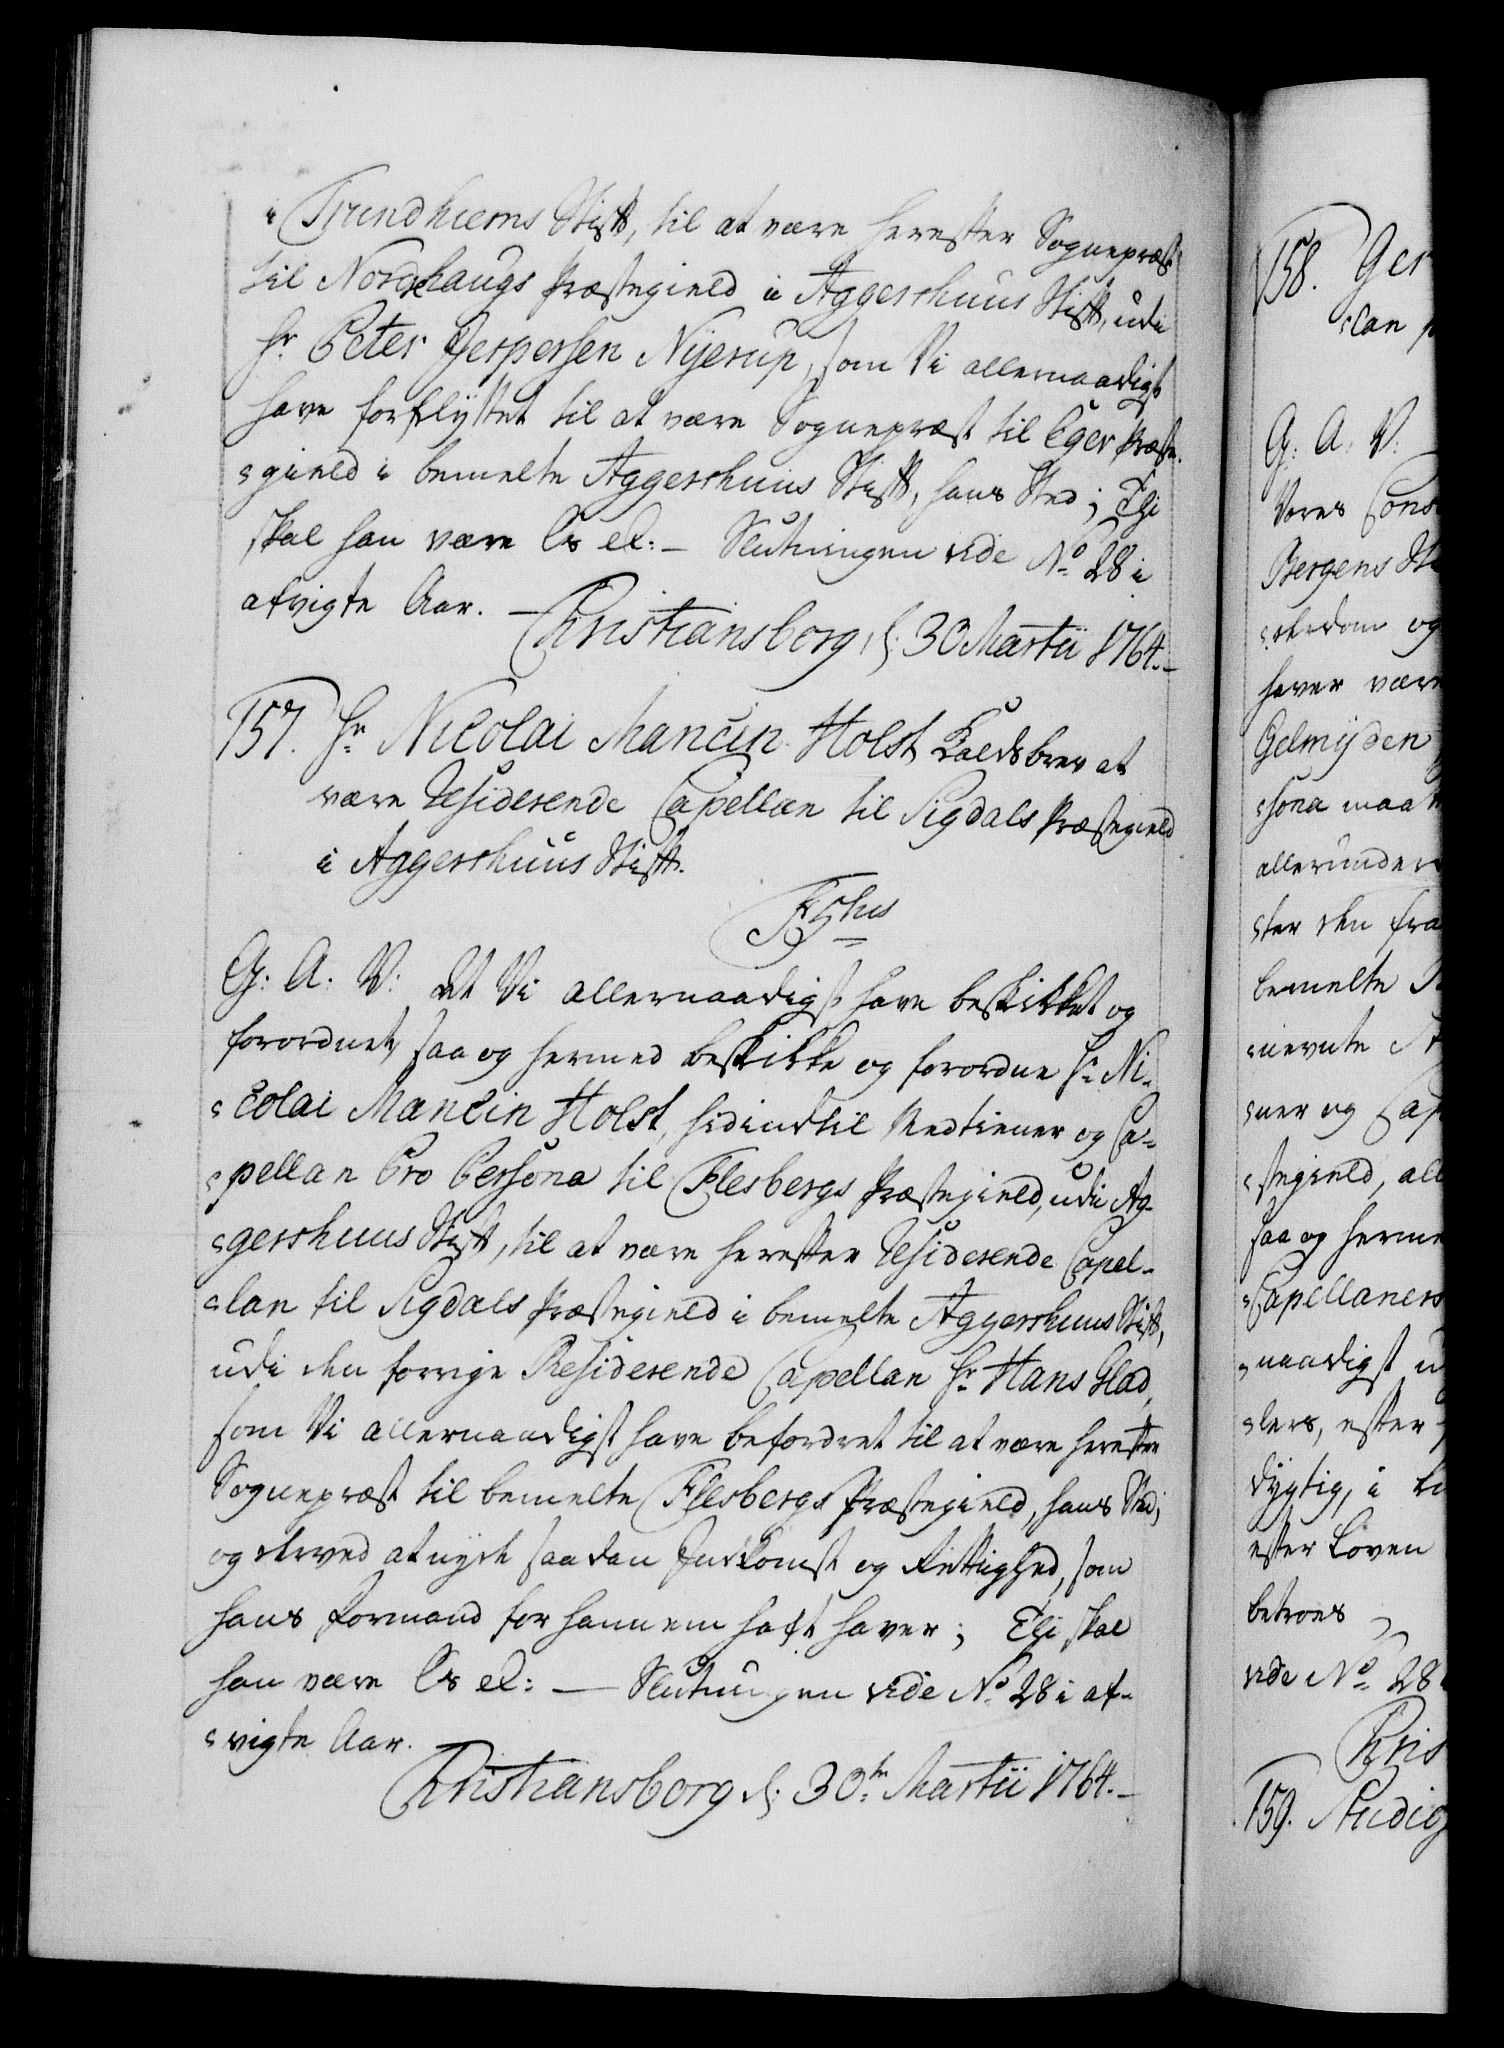 i Trundhiems Stift, til at være herefter Sognepræst
til Nordrehaugs Præstegield i Aggershuus Stift, udi
Hr. Peter Jespersen Nyerup, som Vi allernaadigst
have forflyttet til at være Sognepræst til Eger Præste-
gield i bemelte Aggershuus Stift, hans Sted; Thi
skal han være Os ec: - Slutningen vide No. 28 i
afvigte Aar. -
Christiansborg, d. 30 Martii 1764. -
157. Hr. Nicolai Mancin Holst Kaldsbrev at
være Residerende Capellan til Sigdals Præstegield
i Aggershuus Stift.
F 5tus
G: A: V: At Vi allernaadigst have beskikket og
forordnet, saa og hermed beskikke og forordne Hr. Ni-
colai Mancin Holst, hidindtil Medtiener og Ca-
pellan Pro Persona til Flesbergs Præstegield, udi Ag-
gershuus Stift, til at være herefter Residerende Capel-
lan til Sigdals Præstegield i bemelte Aggershuus Stift,
udi den forrige Residerende Capellan Hr. Hans Glad,
som Vi allernaadigst have befordret til at være herefter
Sognepræst til bemelte Flesbergs Præstegield, hans Sted;
og derved at nyde saadan Indkomst og Rettighed, som
hans Formand for hannem haft haver; Thi skal
han være Os ec: - Slutningen vide No. 28 i af-
vigte Aar.
Christiansborg d. 30te Martii 1764. -
158. Ger
can
G: A: V:
Vores Cons
Bergens
dom og
haver være
Gelmyden
sona maa
allerunder
ter den fra
bemelte
nevnte
ner og Cap
stegield, all
saa og herme
Capellaners
naadigst u
ders, efter
dygtig, i
efter Loven
betroes
vide No. 28
Chris
159.